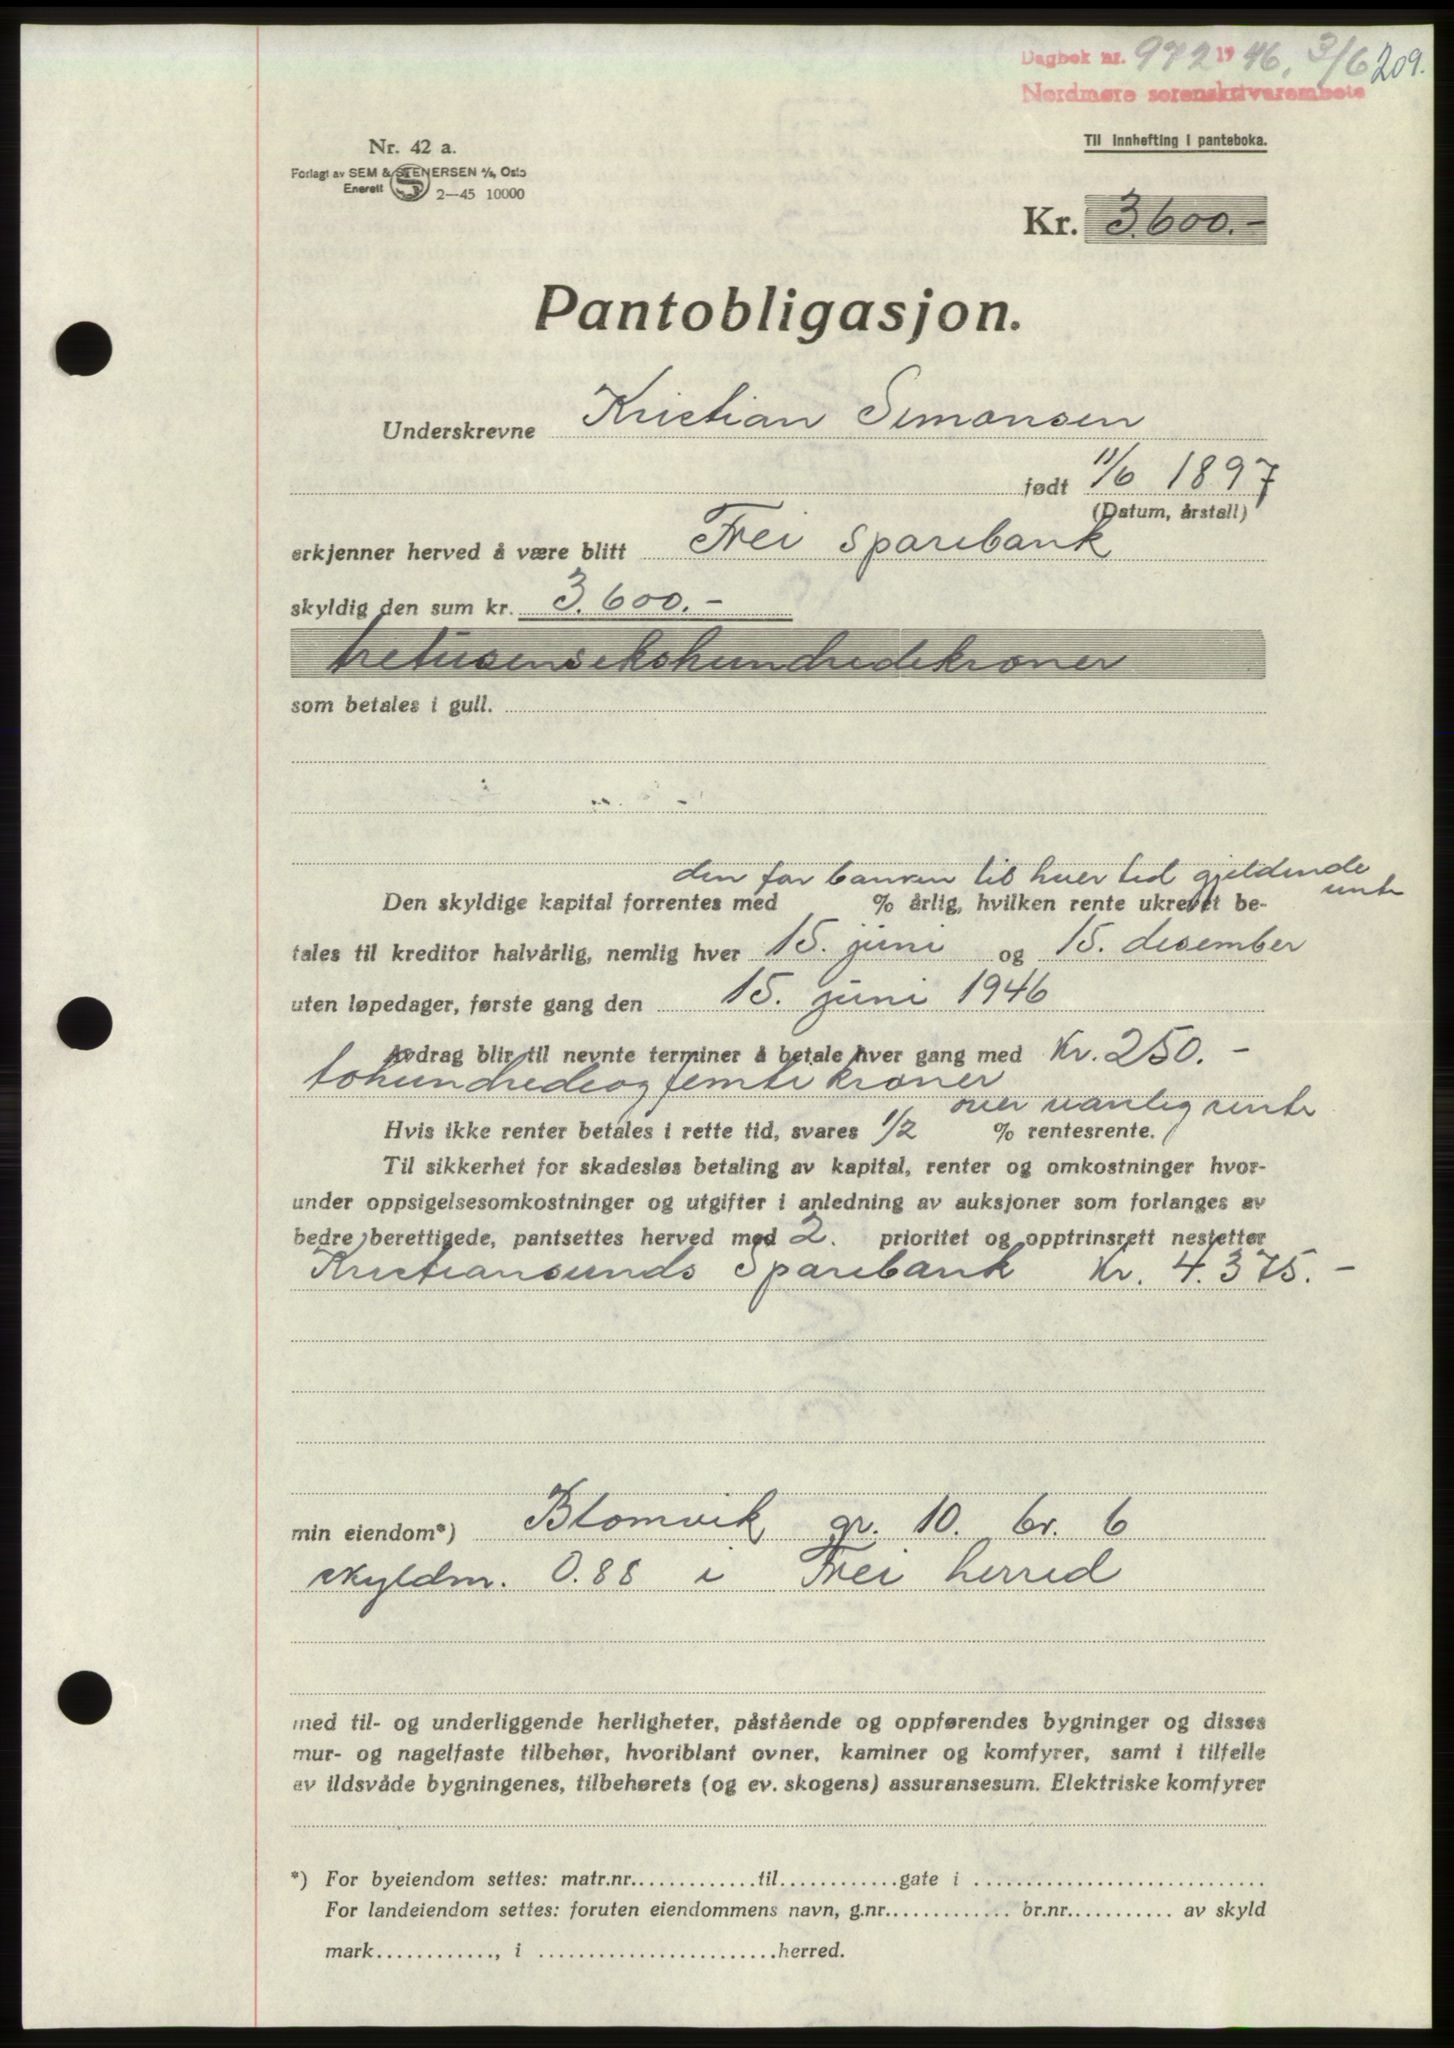 Dagbok nr. 972 1946, 3/6 209.
Nordmøre sorenskrivarembete
Nr. 42 a.
Til innhefting i panteboka.
Forlagt av SEM & STENERSEN A/S, Oslo
Enerett
2—45 10000
Kr. 3.600.-
Pantobligasjon.
Underskrevne Kristian Simonsen
født 11/6 1897
(Datum, årstall)
erkjenner herved å være blitt Frei Sparebank
skyldig den sum kr. 3.600.-
tretusensekshundredekroner
som betales i gull.
den for banken til hver tid gjeldende
rente
Den skyldige kapital forrentes med % årlig, hvilken rente ukrevet be-
tales til kreditor halvårlig, nemlig hver 15. juni og 15. desember
uten løpedager, første gang den 15. juni 1946
Avdrag blir til nevnte terminer å betale hver gang med Kr. 250.-
tohundredeogfemti kroner
over vanlig rente
Hvis ikke renter betales i rette tid, svares 1/2 % rentesrente.
Til sikkerhet for skadesløs betaling av kapital, renter og omkostninger hvor-
under oppsigelsesomkostninger og utgifter i anledning av auksjoner som forlanges av
bedre berettigede, pantsettes herved med 2. prioritet og opptrinsrett nestetter
Kristiansunds Sparebank Kr. 4.375.-
min eiendom*) Blomvik gr. 10. br. 6
skyldm. 0.88 i Frei herred
med til- og underliggende herligheter, påstående og oppførendes bygninger og disses
mur- og nagelfaste tilbehør, hvoriblant ovner, kaminer og komfyrer, samt i tilfelle
av ildsvåde bygningenes, tilbehørets (og ev. skogens) assuransesum. Elektriske komfyrer
*) For byeiendom settes: matr.nr.............til............gate i ............................
For landeiendom settes: foruten eiendommens navn, g.nr............. br.nr.......... av skyld
mark............, i .......................herred.